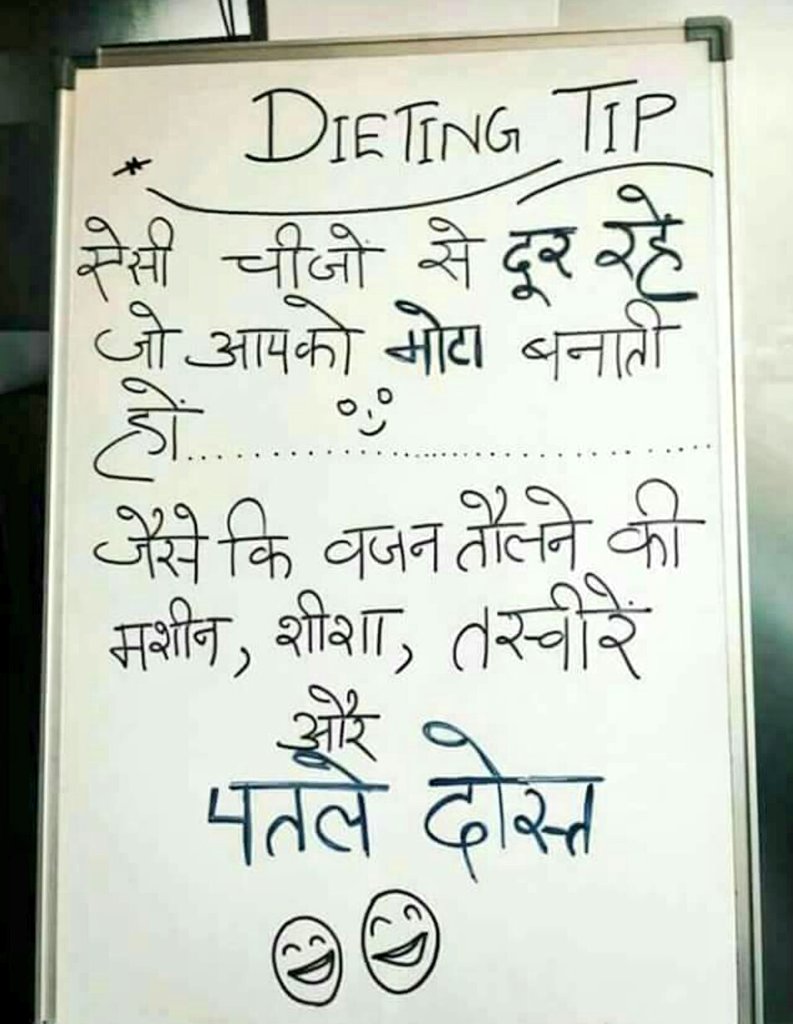 * DIETING TIP
ऐसी चीजों से दूर रहें
जो आपको मोटा बनाती
हों......................................
जैसे कि वजन तौलने की
मशीन, शीशा, तस्वीरें
और
पतले दोस्त